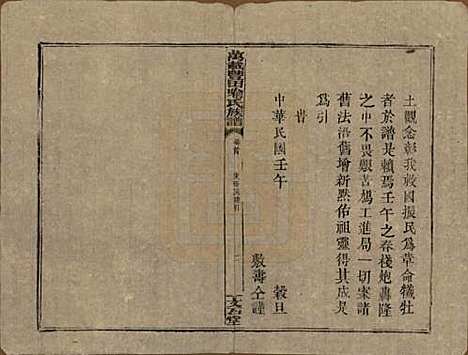 土觀念彰我救國振民爲革命犧牲
者於譜是賴焉壬午之春棧炮轟隆
之中不畏艱苦鳩工進局一切案諸
舊法沿舊增新黙佑祖靈得其成是
爲引
旹
中華民國壬午 穀旦
敷壽仝謹
萬載豐田喻氏族譜
卷首